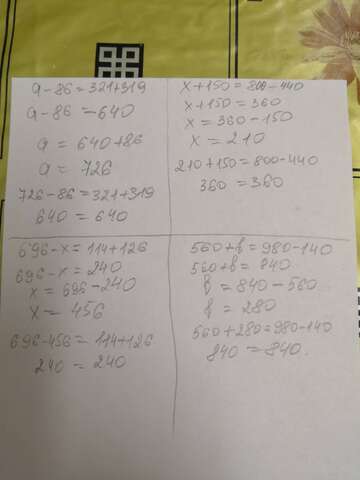 a-86=321+319
a-86=640
a=640+86
a=726
726-86=321+319
640=640
x+150=800-440
x+150=360
x=360-150
x=210
210+150=800-440
360=360
696-x=114+126
696-x=240
x=696-240
x=456
696-456=114+126
240=240
560+b=980-140
560+b=840
b=840-560
b=280
560+280=980-140
840=840.